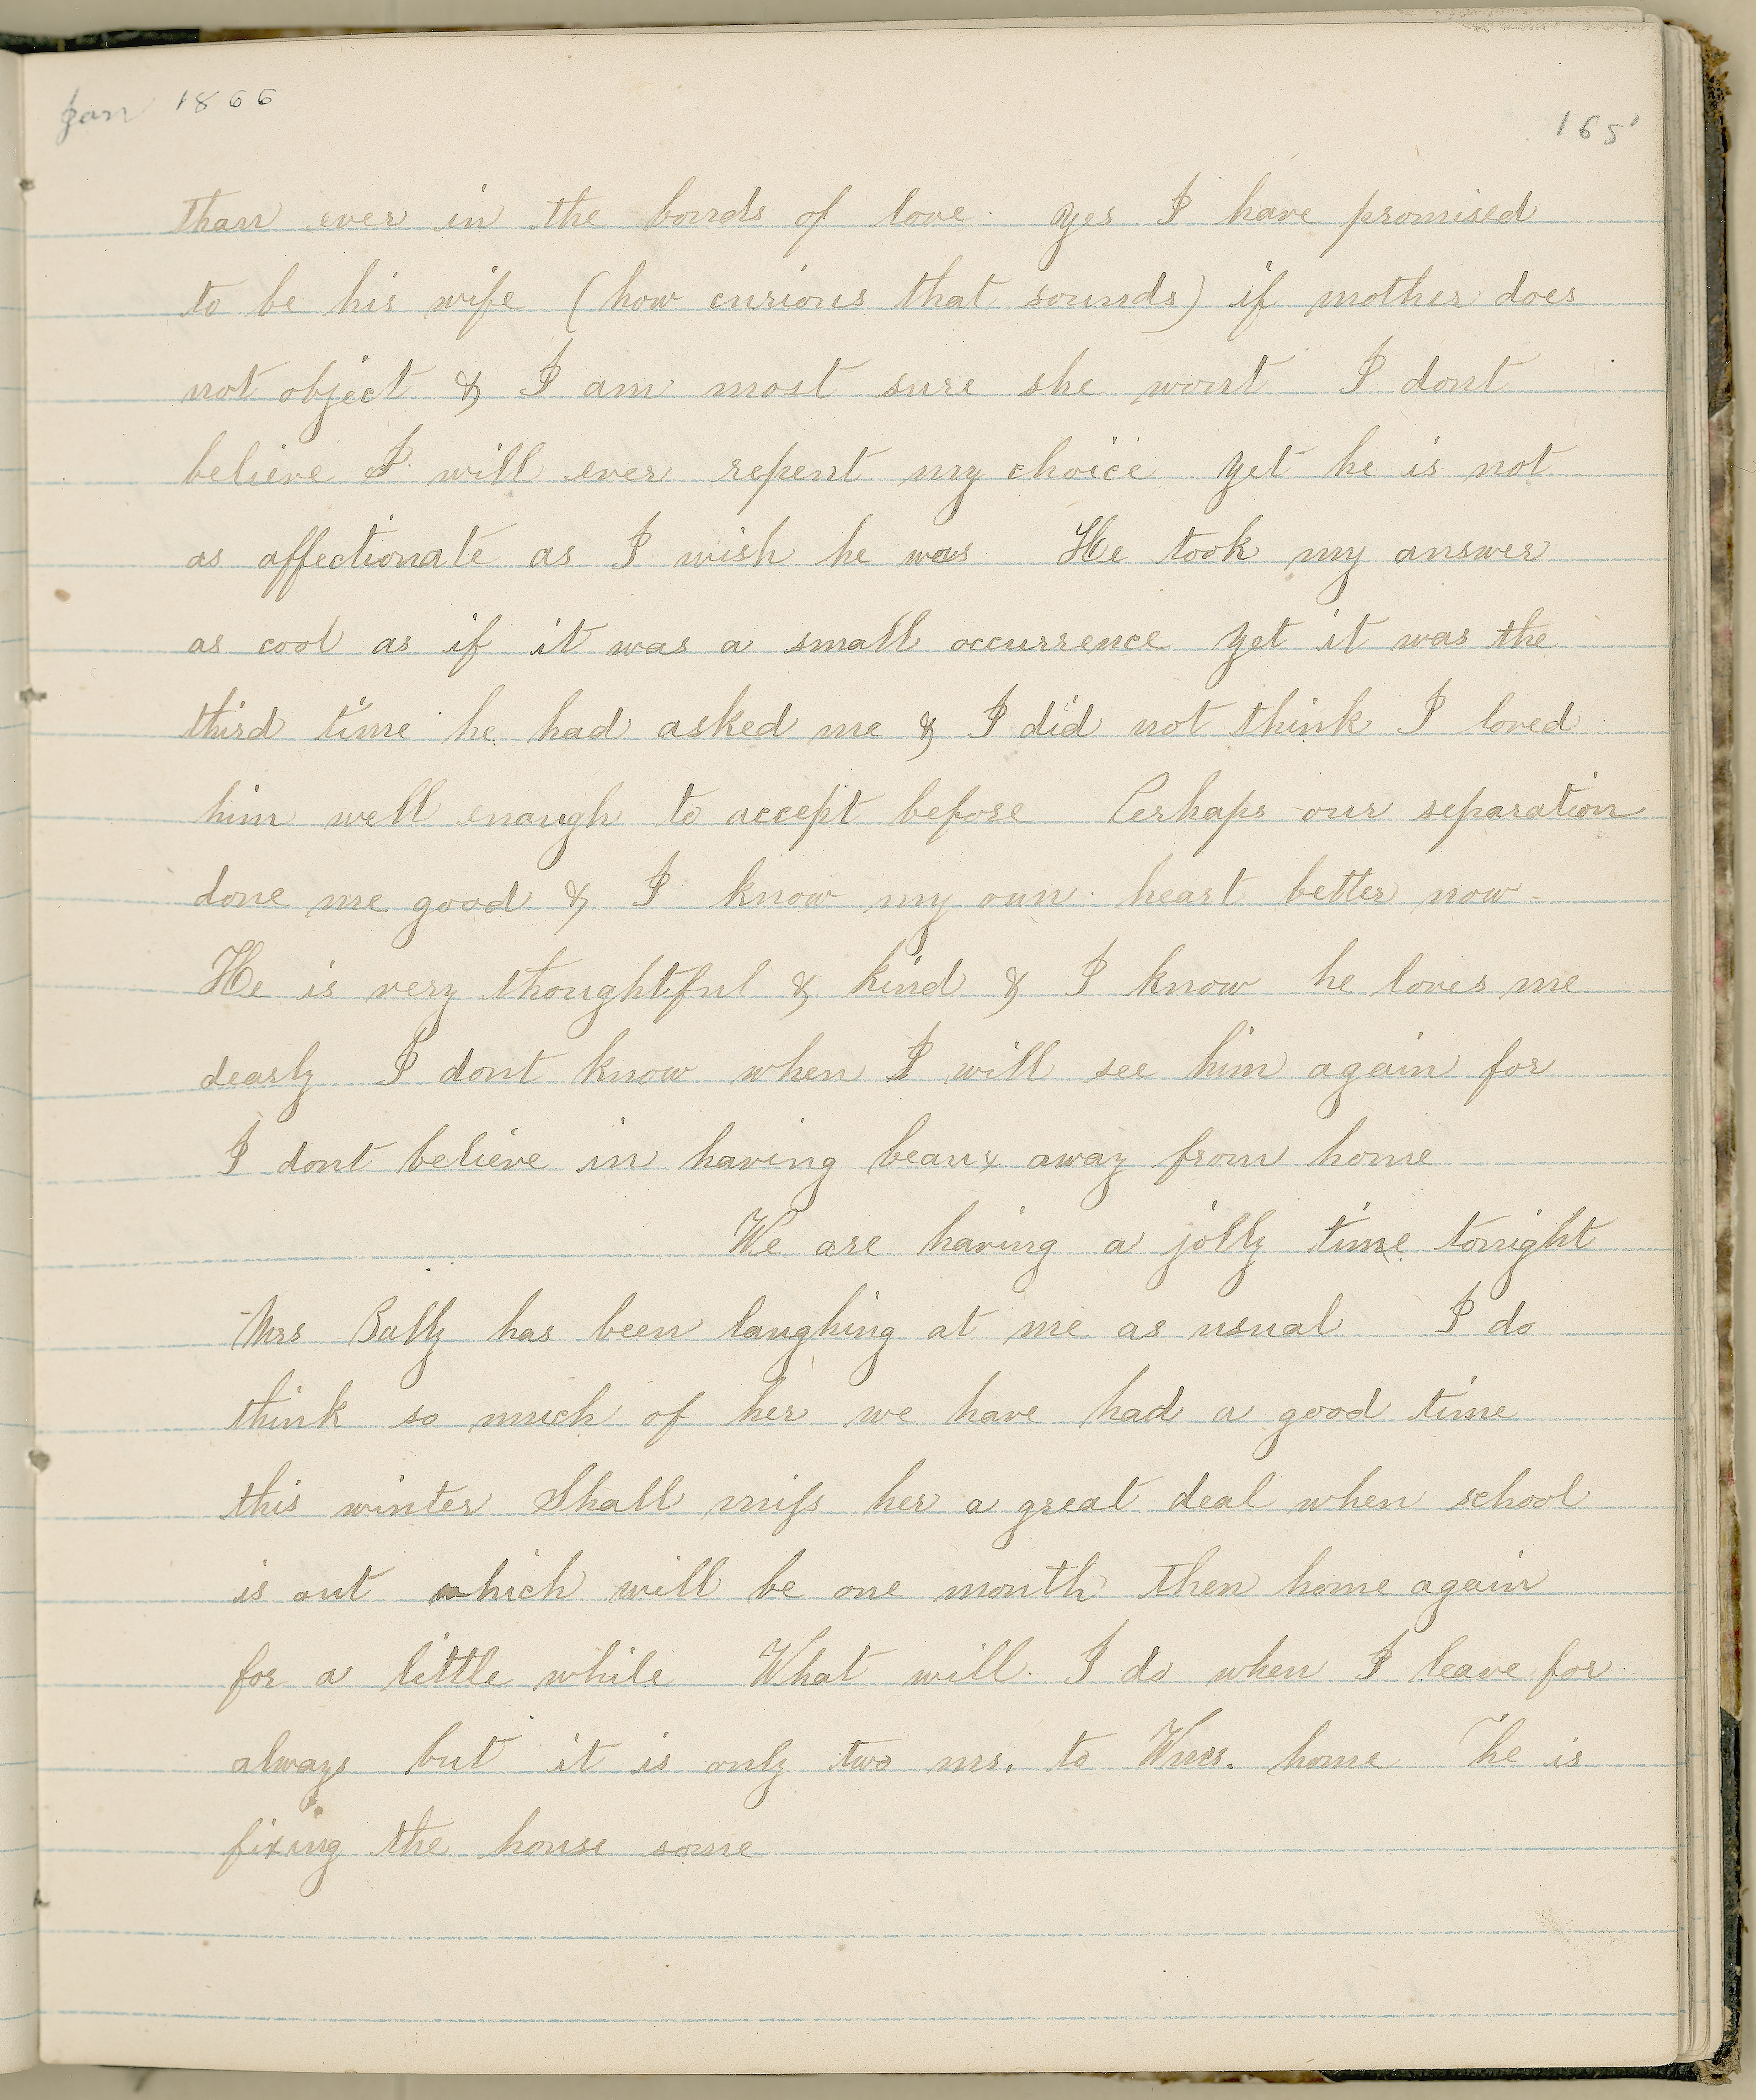 Jan 1866
165
than ever in the bonds of love. Yes I have promised
to be his wife (how curious that sounds) if mother does
not object & I am most sure she wont I dont
believe I will ever repent my choice Yet he is not
as affectionate as I wish he was He took my answer
as cool as if it was a small occurrence Yet it was the
third time he had asked me & I did not think I loved
him well enough to accept before Perhaps our separation
done me good & I know my own heart better now
He is very thoughtful & kind & I know he loves me
dearly I dont know when I will see him again for
I dont believe in having beaux away from home
We are having a jolly time tonight
Mrs has been laughing at me as usual I do
think so much of her we have had a good time
this winter Shall miss her a great deal when school
is out which will be one month then home again
for a little while What will I do when I leave for
always but it is only two ms. to home he is
fixing the house some